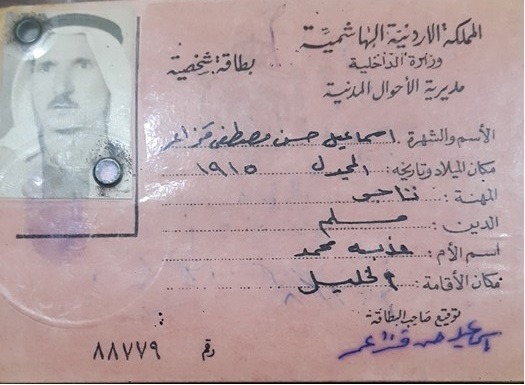 المملكة الاردنية الهاشمية
وزارة الداخلية
بطاقة شخصية
مديرية الأحوال المدنية
الأسم والشهرة: اسماعيل حسن مصطفى قزاعر
مكان الميلاد وتاريخه: المجدل ١٩١٥
المهنة: تاجر
الدين: مسلم
اسم الأم: هذبه محمد
مكان الأقامة: الخليل
توقيع صاحب البطاقة
اسماعيل حسن قزاعر
رقم ٨٨٧٧٩